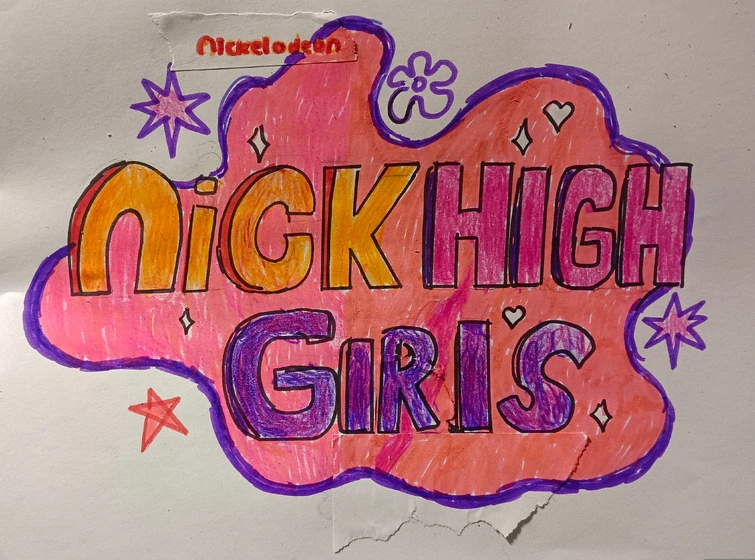 Nickelodeon
NICK HIGH
GIRLS